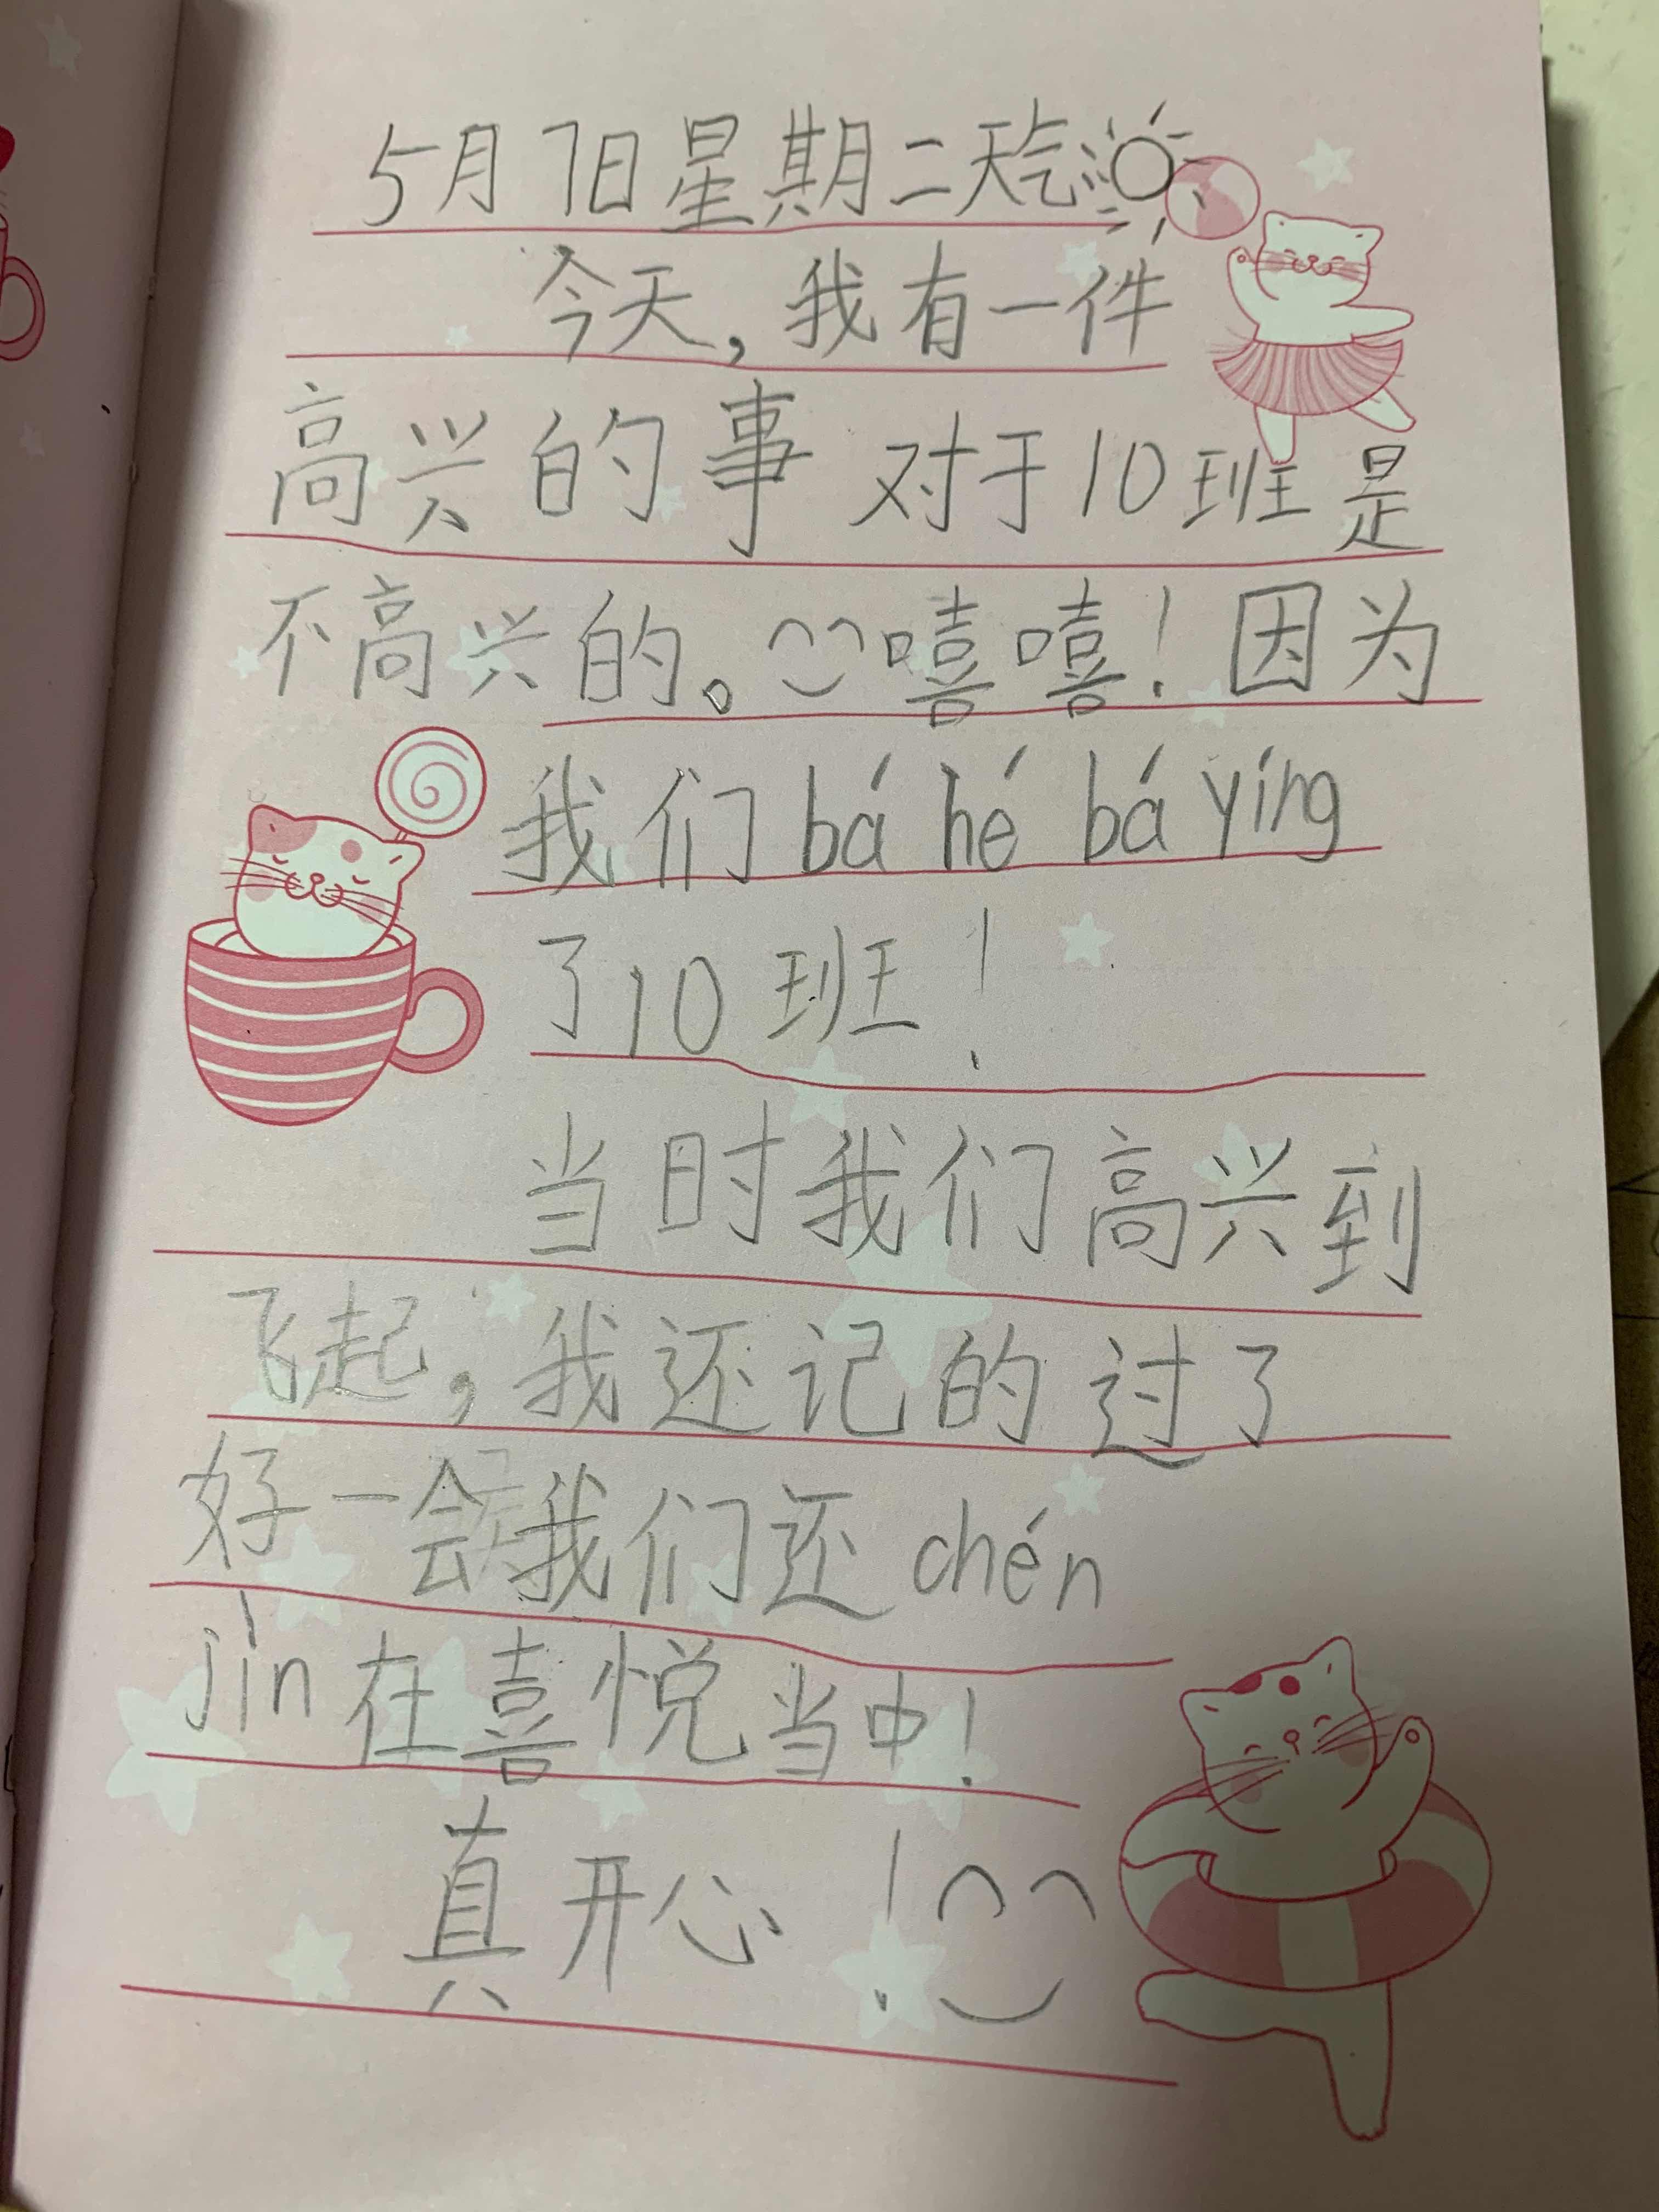 5月7日星期二天气
今天,我有一件
高兴的事 对于10班是
不高兴的。嘻嘻!因为
我们bá hé bá yíng
了10班!
当时我们高兴到
飞起,我还记的过了
好一会我们还chén
jìn在喜悦当中!
真开心!